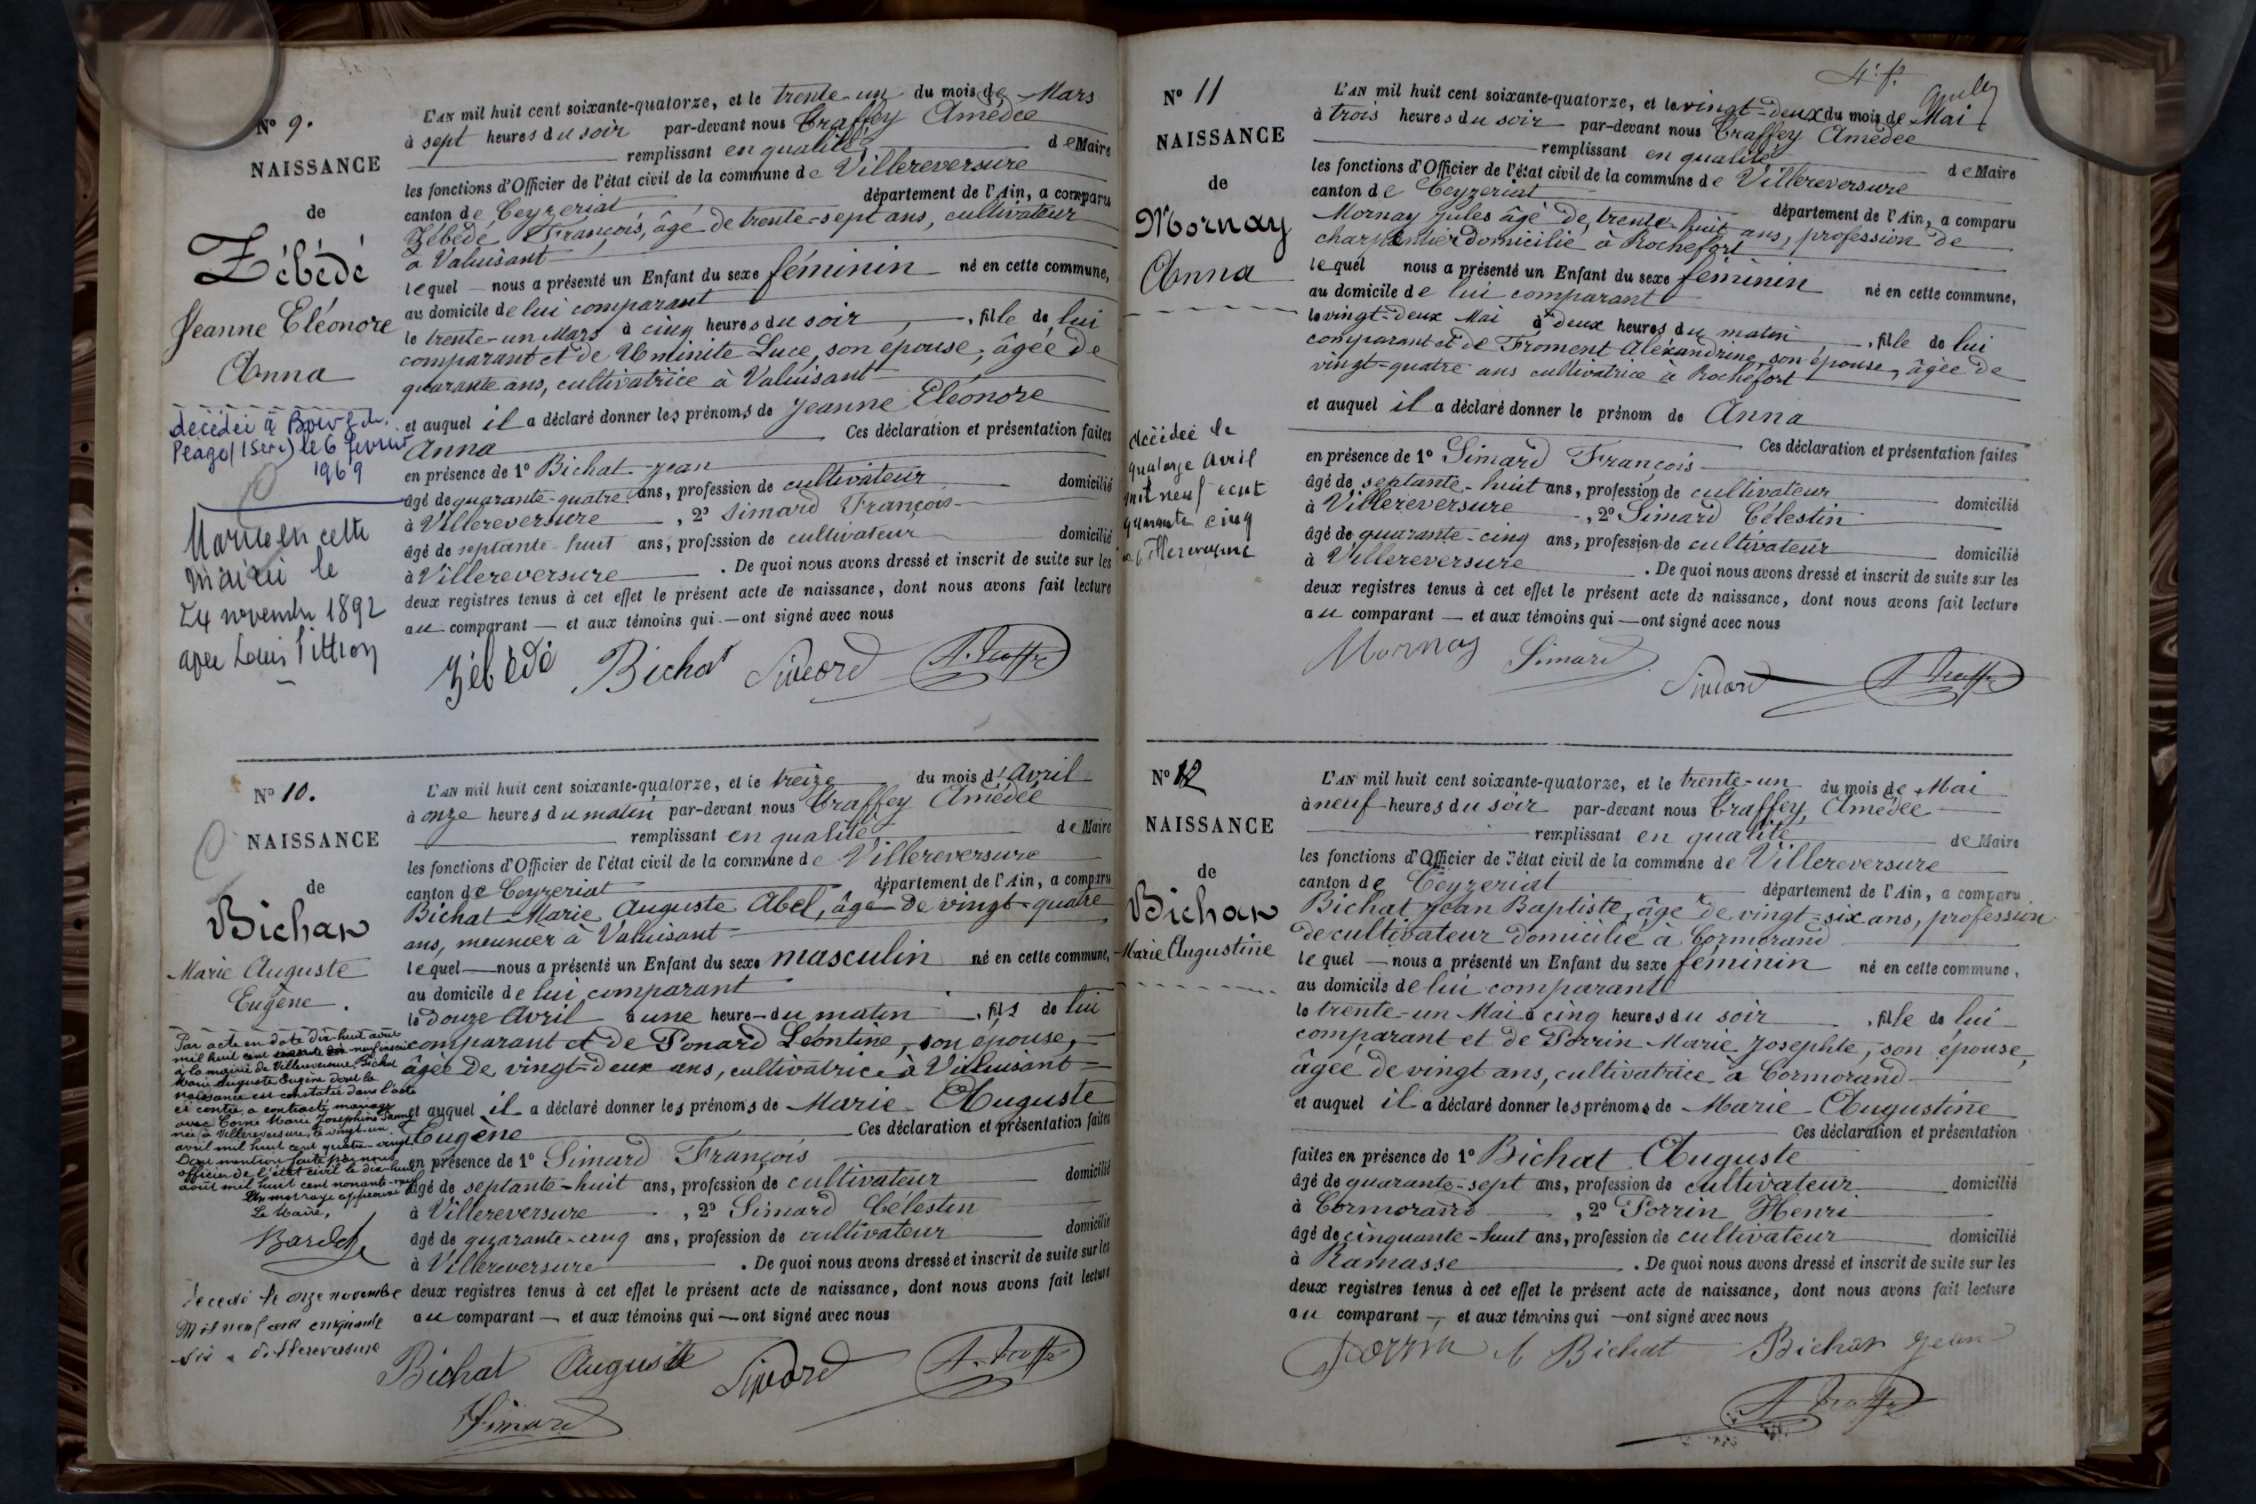 N° 9.
NAISSANCE
de
Zébédé
Jeanne Eléonore
Anna
décédée à Bourg de
Péage (Isère) le 6 février
1969
Mariée en cette
mairie le
24 novembre 1892
avec Louis Pittion
L'AN mil huit cent soixante-quatorze, et le trente-un du mois de Mars
à sept heures du soir par-devant nous Traffey Amédée
remplissant en qualité de Maire
les fonctions d'Officier de l'état civil de la commune de Villereversure
canton de Ceyzeriat département de l'Ain, a comparu
Zébédé François, âgé de trente-sept ans, cultivateur
à Valuisant
lequel nous a présenté un Enfant du sexe féminin né en cette commune,
au domicile de lui comparant
le trente-un Mars à cinq heures du soir, fille de lui
comparant et de Luce, son épouse, âgée de
quarante ans, cultivatrice à Valuisant
et auquel il a déclaré donner les prénoms de Jeanne Eléonore
Anna Ces déclaration et présentation faites
en présence de 1° Bichat Jean
âgé de quarante-quatre ans, profession de cultivateur domicilié
à Villereversure, 2° Simard François
âgé de septante-huit ans, profession de cultivateur domicilié
à Villereversure. De quoi nous avons dressé et inscrit de suite sur les
deux registres tenus à cet effet le présent acte de naissance, dont nous avons fait lecture
au comparant et aux témoins qui ont signé avec nous
Zébédé Bichat Simard A. Traffey
N° 10.
NAISSANCE
de
Bichat
Marie Auguste
Eugène.
Par acte en date dix-huit avril
mil huit cent neuf inscrit
à la mairie de Villereversure, Bichat
Marie Auguste Eugène dont la
naissance est constatée dans l'acte
ci contre, a contracté mariage
avec Marie Joséphine
née à Villereversure, le vingt-un
avril mil huit cent quatre-vingt
Dont mention faite par nous
officier de l'état civil le dix-huit
août mil huit cent nonante-neuf
Un mot rayé approuvé
Le Maire,
décédé le onze novembre
mil neuf cent cinquante
six à Villereversure
L'AN mil huit cent soixante-quatorze, et le treize du mois d'Avril
à onze heures du matin par-devant nous Traffey Amédée
remplissant en qualité de Maire
les fonctions d'Officier de l'état civil de la commune de Villereversure
canton de Ceyzeriat département de l'Ain, a comparu
Bichat Marie Auguste Abel, âgé de vingt-quatre
ans, meunier à Valuisant
lequel nous a présenté un Enfant du sexe masculin né en cette commune,
au domicile de lui comparant
le douze Avril à une heure du matin, fils de lui
comparant et de Ponard Léontine, son épouse,
âgée de vingt-deux ans, cultivatrice à Valuisant
et auquel il a déclaré donner les prénoms de Marie Auguste
Eugène Ces déclaration et présentation faites
en présence de 1° Simard François
âgé de septante-huit ans, profession de cultivateur domicilié
à Villereversure, 2° Simard Célestin
âgé de quarante-cinq ans, profession de cultivateur domicilié
à Villereversure. De quoi nous avons dressé et inscrit de suite sur les
deux registres tenus à cet effet le présent acte de naissance, dont nous avons fait lecture
au comparant et aux témoins qui ont signé avec nous
Bichat Auguste Simard A. Traffey
Simard
4e f.
N° 11
NAISSANCE
de
Mornay
Anna
décédée le
quatorze avril
mil neuf cent
quarante cinq
à Villereversure
L'AN mil huit cent soixante-quatorze, et le vingt-deux du mois de Mai
à trois heures du soir par-devant nous Traffey Amédée
remplissant en qualité de Maire
les fonctions d'Officier de l'état civil de la commune de Villereversure
canton de Ceyzeriat département de l'Ain, a comparu
Mornay Jules âgé de trente-huit ans, profession de
charpentier domicilié à Rochefort
lequel nous a présenté un Enfant du sexe féminin né en cette commune,
au domicile de lui comparant
le vingt-deux Mai à deux heures du matin, fille de lui
comparant et de Froment Alexandrine, son épouse, âgée de
vingt-quatre ans cultivatrice à Rochefort
et auquel il a déclaré donner le prénom de Anna
Ces déclaration et présentation faites
en présence de 1° Simard François
âgé de septante-huit ans, profession de cultivateur domicilié
à Villereversure, 2° Simard Célestin
âgé de quarante-cinq ans, profession de cultivateur domicilié
à Villereversure. De quoi nous avons dressé et inscrit de suite sur les
deux registres tenus à cet effet le présent acte de naissance, dont nous avons fait lecture
au comparant et aux témoins qui ont signé avec nous
Mornay Simard
Simard A. Traffey
N° 12
NAISSANCE
de
Bichat
Marie Augustine
L'AN mil huit cent soixante-quatorze, et le trente-un du mois de Mai
à neuf heures du soir par-devant nous Traffey, Amédée
remplissant en qualité de Maire
les fonctions d'Officier de l'état civil de la commune de Villereversure
canton de Ceyzeriat département de l'Ain, a comparu
Bichat Jean Baptiste, âgé de vingt-six ans, profession
de cultivateur domicilié à Cormorand
lequel nous a présenté un Enfant du sexe féminin né en cette commune,
au domicile de lui comparant
le trente-un Mai à cinq heures du soir, fille de lui
comparant et de Perrin Marie Josephte, son épouse,
âgée de vingt ans, cultivatrice à Cormorand
et auquel il a déclaré donner les prénoms de Marie Augustine
Ces déclaration et présentation
faites en présence de 1° Bichat Auguste
âgé de quarante-sept ans, profession de cultivateur domicilié
à Cormorand, 2° Perrin Henri
âgé de cinquante-huit ans, profession de cultivateur domicilié
à Ramasse. De quoi nous avons dressé et inscrit de suite sur les
deux registres tenus à cet effet le présent acte de naissance, dont nous avons fait lecture
au comparant et aux témoins qui ont signé avec nous
Perrin A Bichat Bichat Jean
A. Traffey